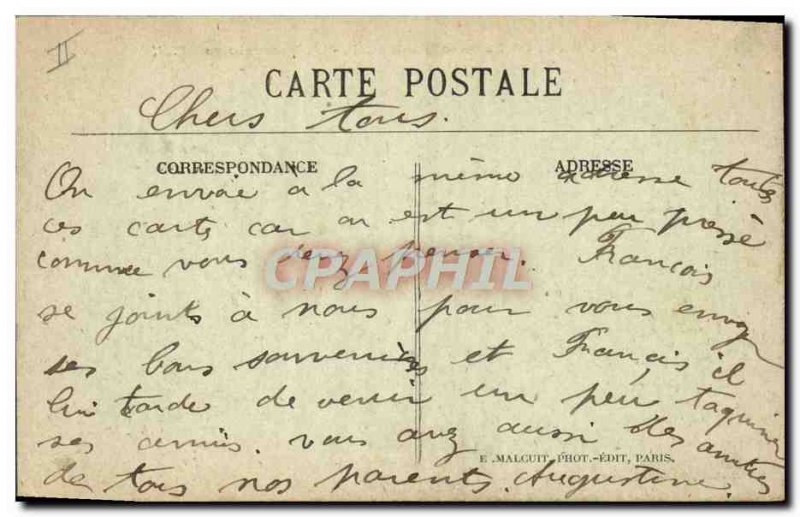 II
CARTE POSTALE
Chers tous.
CORRESPONDANCE
ADRESSE
On envoie à la même adresse toutes
ces carts car on est un peu pressé
comme vous penser. François
se joints à nous pour vous envoyer
ses bons souvenirs et Francis, il
lui tarde de venir un peu taquiner
ses amies. vous avez aussi des amitiés
de tous nos parents. Augustine.
E. MALCUIT, PHOT.-ÉDIT, PARIS.
CPAPHIL